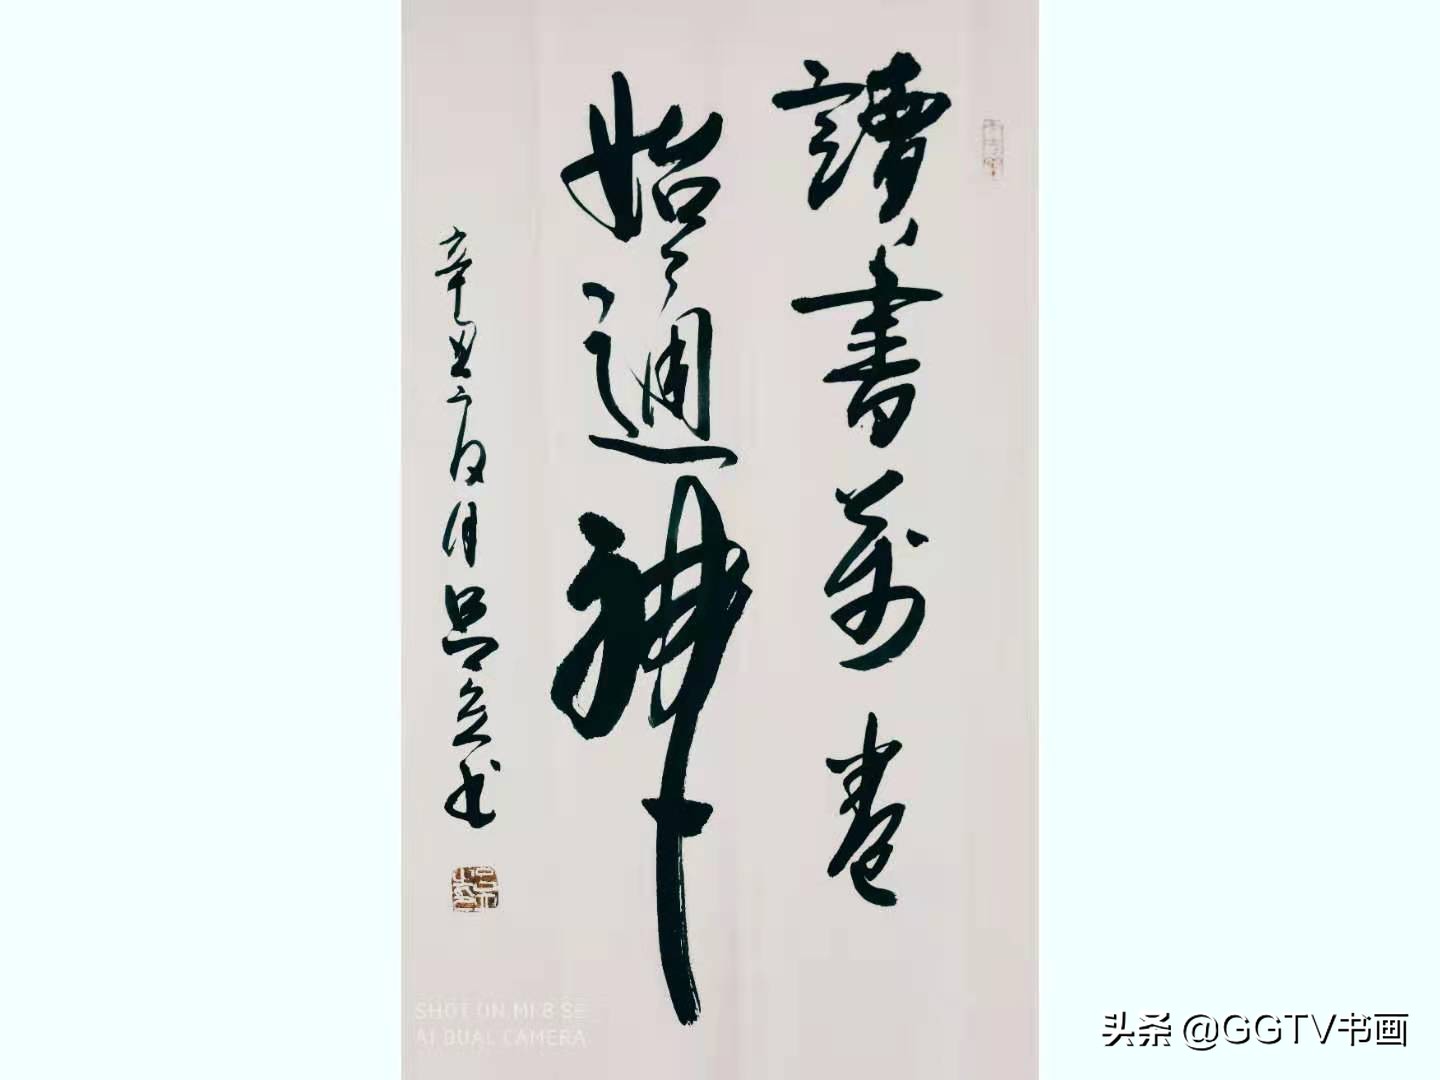 讀書萬卷
始通神
辛丑夏月 书
SHOT ON MI 8 SE
AI DUAL CAMERA
头条 @GGTV书画